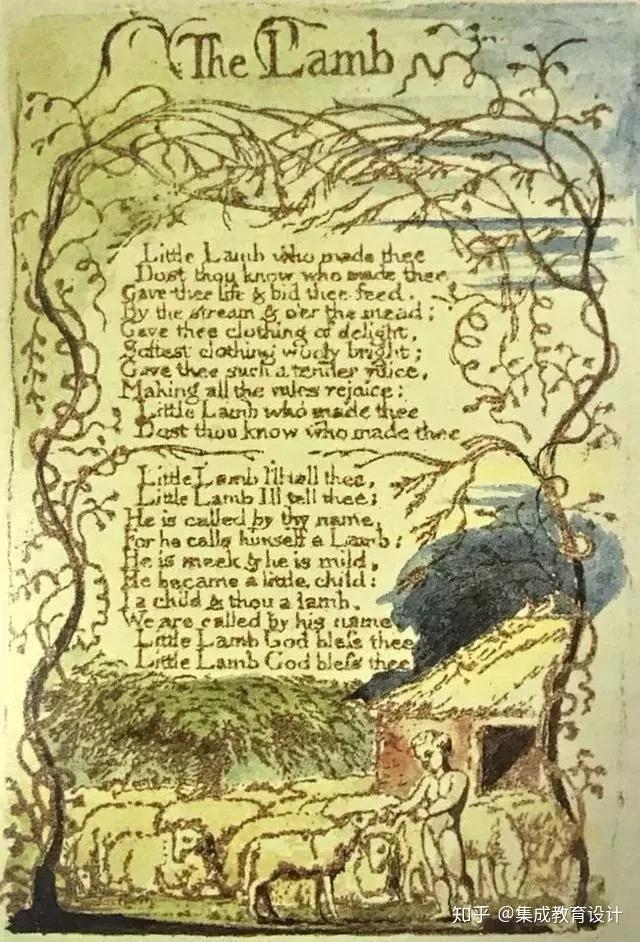 The Lamb
Little Lamb who made thee
Dost thou know who made thee
Gave thee life & bid thee feed.
By the stream & o'er the mead;
Gave thee clothing of delight,
Softest clothing wooly bright;
Gave thee such a tender voice,
Making all the vales rejoice:
Little Lamb who made thee
Dost thou know who made thee
Little Lamb I'll tell thee,
Little Lamb I'll tell thee;
He is called by thy name,
For he calls himself a Lamb:
He is meek & he is mild,
He became a little child:
I a child & thou a lamb,
We are called by his name
Little Lamb God bleſs thee
Little Lamb God bleſs thee
知乎 @集成教育设计